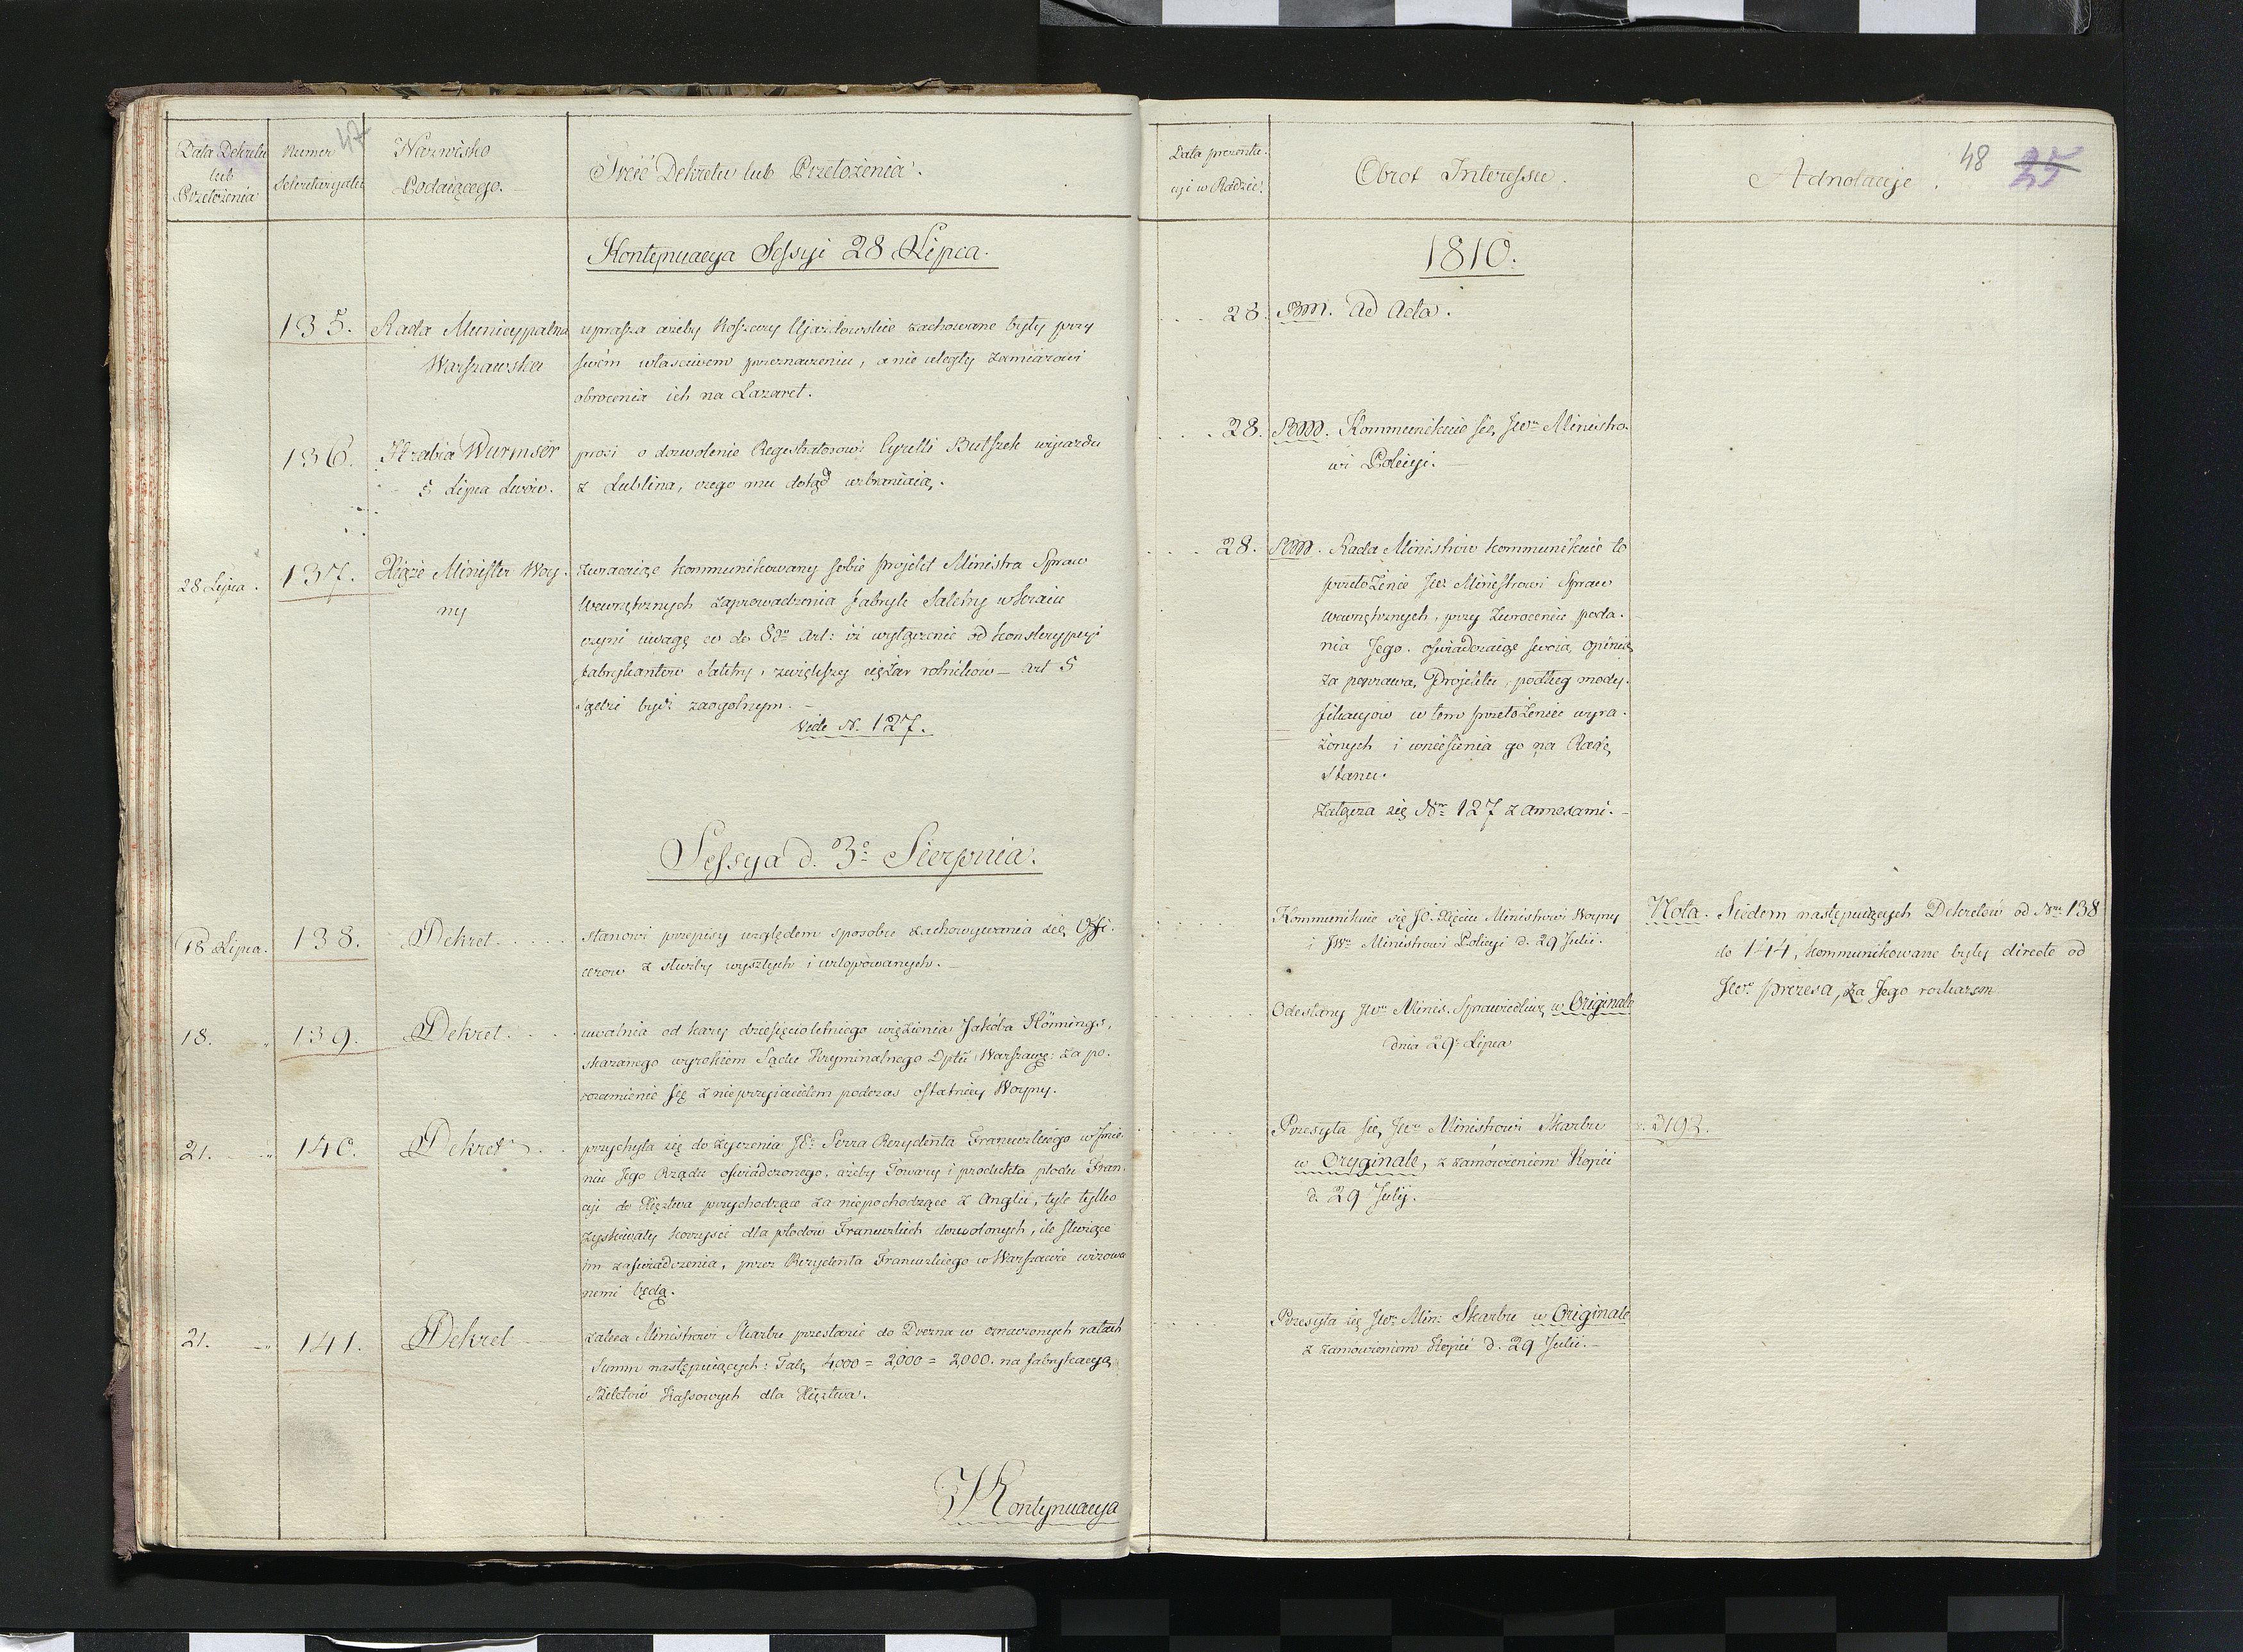 47
Data Dekretu
lub
Przełożenia
Numer
Sekretaryatu
Nazwisko
Podaiącego.
Treść Dekretu lub Przełożenia.
Kontynuacya Sessyi 28 Lipca.
135.
Rada Municypalna
Warszawska
uprasza ażeby Koszary Ujazdowskie zachowane były przy
swém własciwem przeznaczeniu, a nie uległy zamiarowi
obrocenia ich na Lazaret.
136.
Hrabia Wurmser
5 Lipca Lwów.
prosi o dozwolenie Registratorowi Cyrilli Butszek wyiazdu
z Lublina, czego mu dotąd wzbraniaią.
28 Lipca.
137.
Xiąże Minister Woy
ny
zwracaiąc kommunikowany sobie projekt Ministra Spraw
Wewnętrznych zaprowadzenia fabryk Saletry w kraiu
czyni uwagę co do 8go Art: iż wyłączenie od konskrypcyi
fabrykantow Saletry, zwiększy ciężar rolnikow – art 5
sądzi być zaogolnym. –
Vide N. 127.
Sessya d. 3o Sierpnia.
18 Lipca.
138.
Dekret
stanowi przepisy względem sposobu zachowywania się Offi-
cerow z służby wyszłych i urlopowanych. –
18.
139.
Dekret
uwalnia od kary dziesięcioletniego więzienia Jakóba Hömings,
skazanego wyrokiem Sądu Kryminalnego Dptu Warszawę: za po-
rozumienie się z nieprzyiacielem podczas ostatniey Woyny.
21.
140.
Dekret
przychyla się do życzenia JP. Serra Rezydenta Francuzkiego w Imie
niu Jego Rządu oświadczonego, ażeby Towary i produkta płodu Fran-
cyi do Xięztwa przychodzące za niepochodzące z Anglii, tyle tylko
zyskiwały korzyści dla płodow Francuzkich dozwolonych, ile służące
im zaświadczenia, przez Rezydenta Francuzkiego w Warszawie wizowa
nemi będą.
21.
141.
Dekret
zaleca Ministrowi Skarbu przesłanie do Drezna w oznaczonych ratach
Summ następuiących: Talę 4000 = 2,000 = 2,000. na fabrykacyą
Biletow Kassowych dla Xięztwa.
Kontynuacya
Data prezenta-
cyi w Radzie.
Obrot Interessu.
Adnotacye.
48
25
1810.
28.
Ad Acta.
28.
Kommunikuie się JWu Ministro-
wi Policyi. –
28.
Rada Ministrów kommunikuie to
przełożenie JW: Ministrowi Spraw
wewnętrznych, przy zwrocenie poda-
nia Jego. oświadczaiąc swoią opinią
za poprawą Projektu, podług mody-
fikacyow w tem przełożeniu wyra-
żonych i wniesienia go na Radę
Stanu.
Załącza się Nr 127 z annexami. –
Kommunikuie się JO. Xięciu Ministrowi Woyny
i JWu Ministrowi Policyi d. 29 Julii.
Nota. Siedem następuiących Dekretów od Nru 138
do 144, kommunikowane były directe od
JWo prezesa, za Jego rozkazem
Odesłany JWu Minis. Sprawiedliwę w Originale
dnia 29o Lipca
Przesyła się JWu Ministrowi Skarbu
w Oryginale, z zamówieniem Kopii
d. 29 July.
192.
Przesyła się JWu Min: Skarbu w Originale
z zamówieniem Kopii d. 29 Julii. –